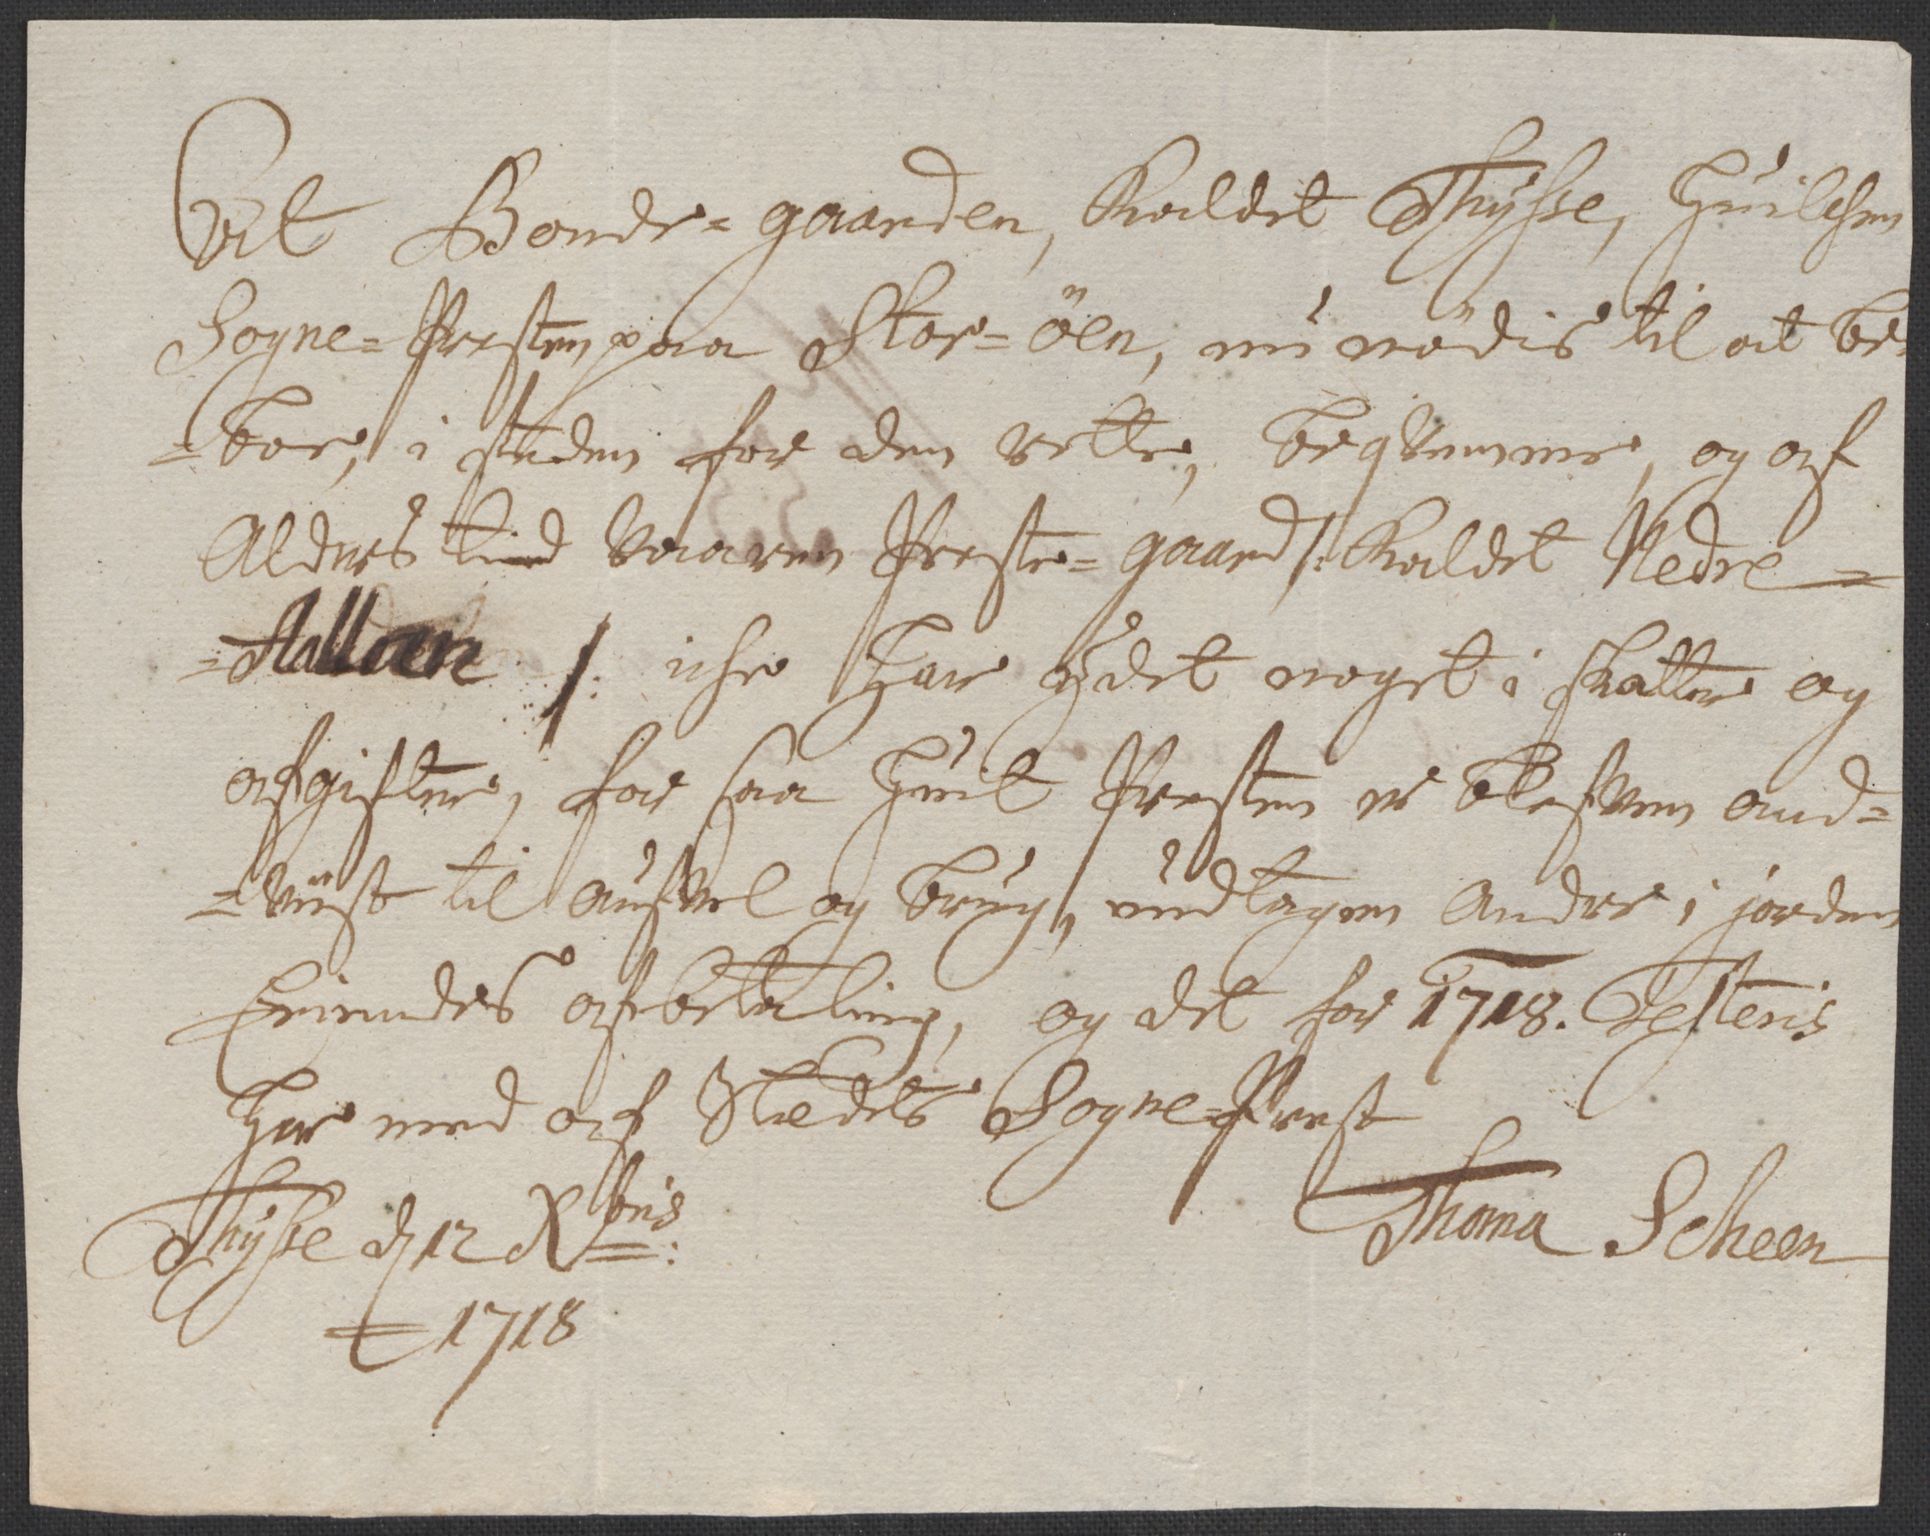 At Bonde=gaarden, kaldet Thysse, huilchen
Sogne=Presten paa Stor=öen, nu nödis til at be=
=boe, i steden for den rette, beqvemme, og af
Alders tiid vaaren Preste=gaard /: kaldet Nedre=
/: iche har ydet noget i skatter og
afgifter, for saa huit Presten er blefven and=
=viist til aufvel og brug, undtagen andre i jorden
Eyendes afbetaling, og det for 1718. Testeris
her med af Stædets Sogne=Prest
Thoma Scheen
Thysse d 12 Xbris:
1718